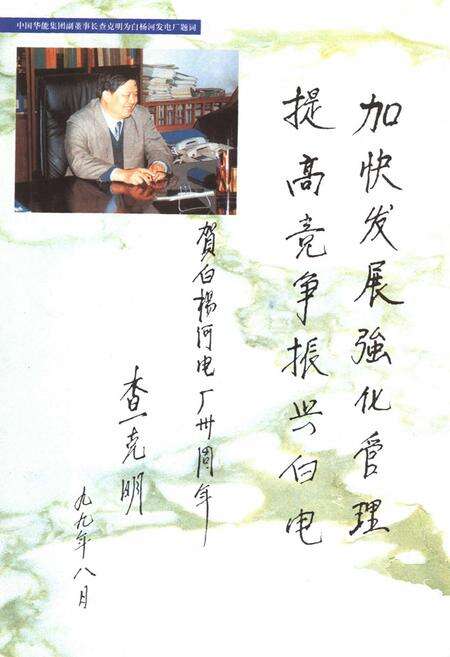 中国华能集团副董事长查克明为白杨河发电厂题词
加快发展強化管理
提高竞争振兴白电
贺白楊河电厂卅周年
查克明
九九年八月